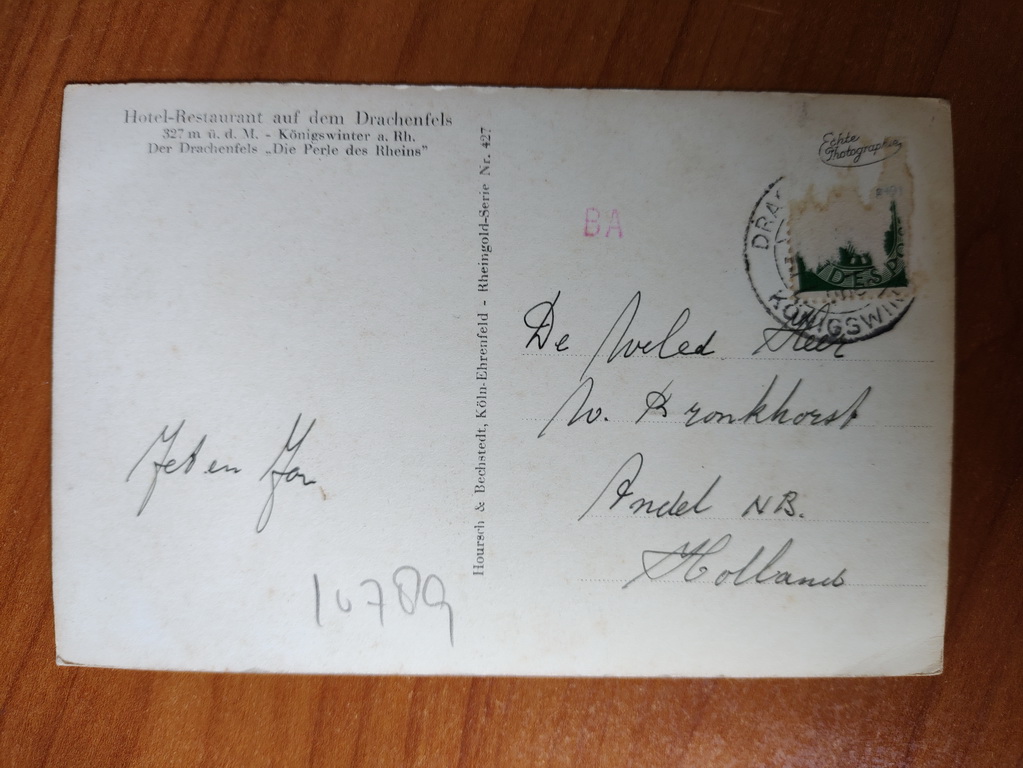 Hotel-Restaurant auf dem Drachenfels
327 m ü. d. M. - Königswinter a. Rh.
Der Drachenfels „Die Perle des Rheins"
Hoursch & Bechstedt, Köln-Ehrenfeld - Rheingold-Serie Nr. 427
Echte Photographie
BA
DRA
DESPO
KÖNIGSWIN
De Weled. Heer
W. Kronkhorst
Andel NB.
Holland
Jet en Jan
10789